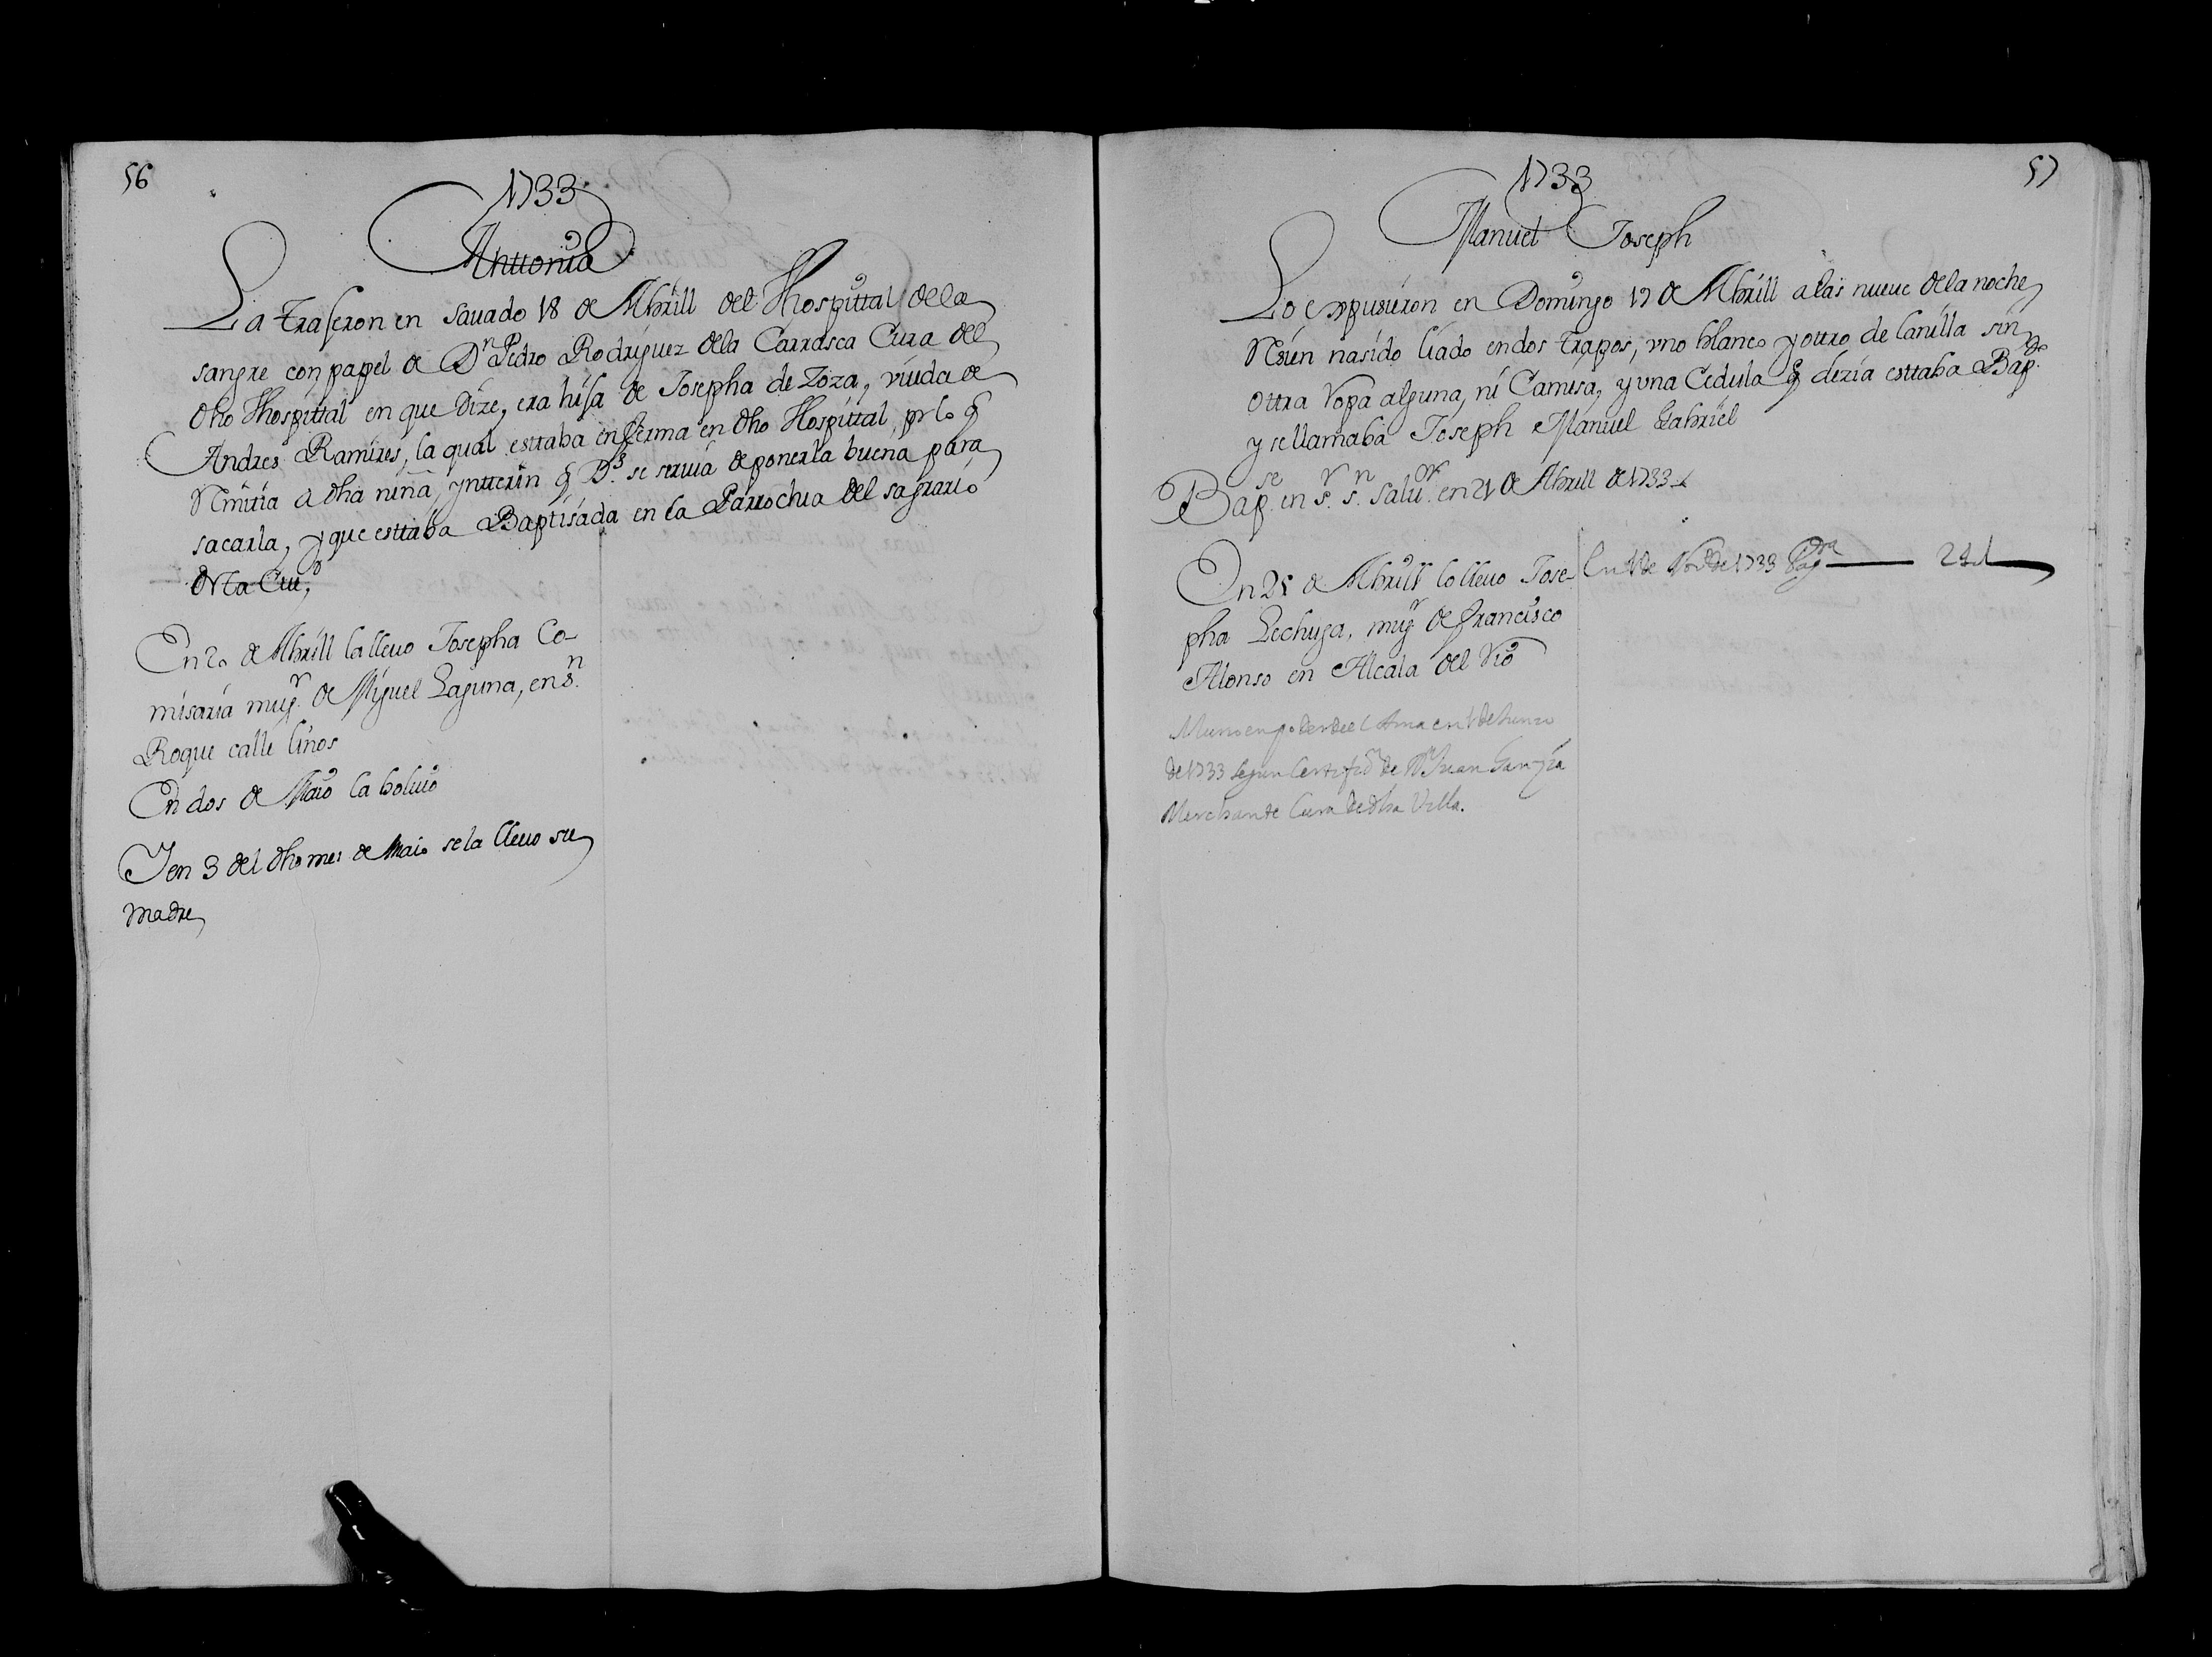 56
1733
Anttonia
La traseron en sauado 18 de Abrill del Hospittal de la
sangre con papel de Dn Pedro Rodriguez de la Carrasca Cura del
dho Hospittal en que dize, era hija de Josepha de Zoza, viuda de
Andres Ramires, la qual esttaba enferma en dho Hospittal, pr lo q
Rmitia a dha niña, ynterin q Ds. se seruia de ponerla buena para
sacarla, y que esttaba Baptisada en la Parrochia del sagrario
de sta Ciud,
En 20 de Abrill la lleuo Josepha Co-
misaria mugr. de Miguel Laguna, en sn.
Roque calle linos
En dos de Maio la boluio
Y en 3 del dho mes de Maio se la lleuo su
madre
57
1733
Manuel Joseph
Lo expusieron en Domingo 19 de Abrill a las nueue de la noche
Rsien nasido liado en dos trapos, vno blanco y ottro de lanilla sin
ottra ropa alguna, ni Camisa, y vna Cedula q dezia esttaba Bapdo.
y se llamaba Joseph Manuel Gabriel
Bapse. en sr. sn. Saludr. en 21 de Abrill de 1733
En 21 de Abrill lo lleuo Jose-
pha Lechuga, mugr de francisco
Alonso en Alcala del Rio
Murio en poder de el Ama en 1 de Junio
de 1733 segun Certifn de Dn Juan Garzia
Merchante Cura de dha Villa.
En 1 de de 1733